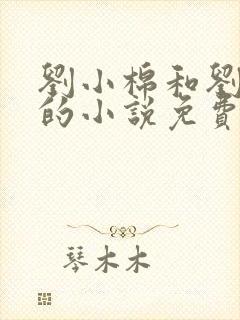 劉小棉和劉
的小說免費
琴木木